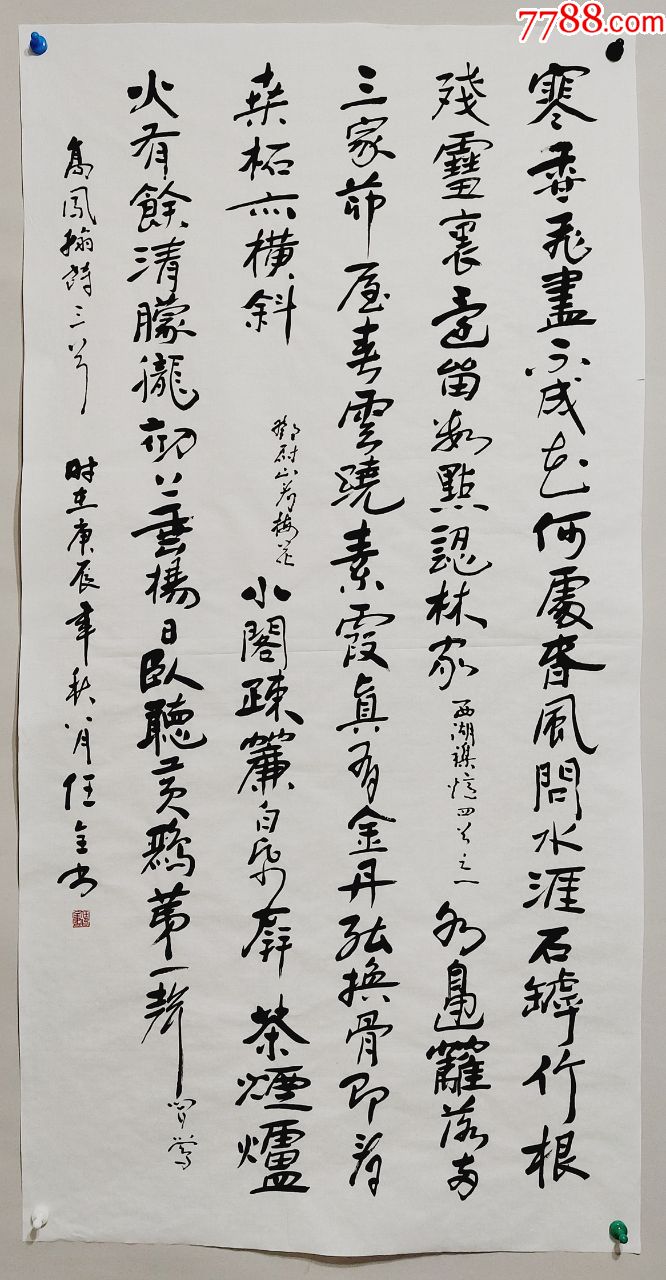 7788.com
寒香飛盡不成花何處春風問水涯石罅竹根
殘雪裏還留數點認林家西湖襍憶四首之一水邊籬落兩
三家茆屋春雲繞素霞真有金丹能換骨即看
桑柘亦橫斜鄧尉山看梅花小閣疎簾白紙屏茶煙爐
火有餘清朦朧初上垂楊日臥聽黃鸝第一聲聞鶯
高鳳翰詩三首时在庚辰年秋八月任金書